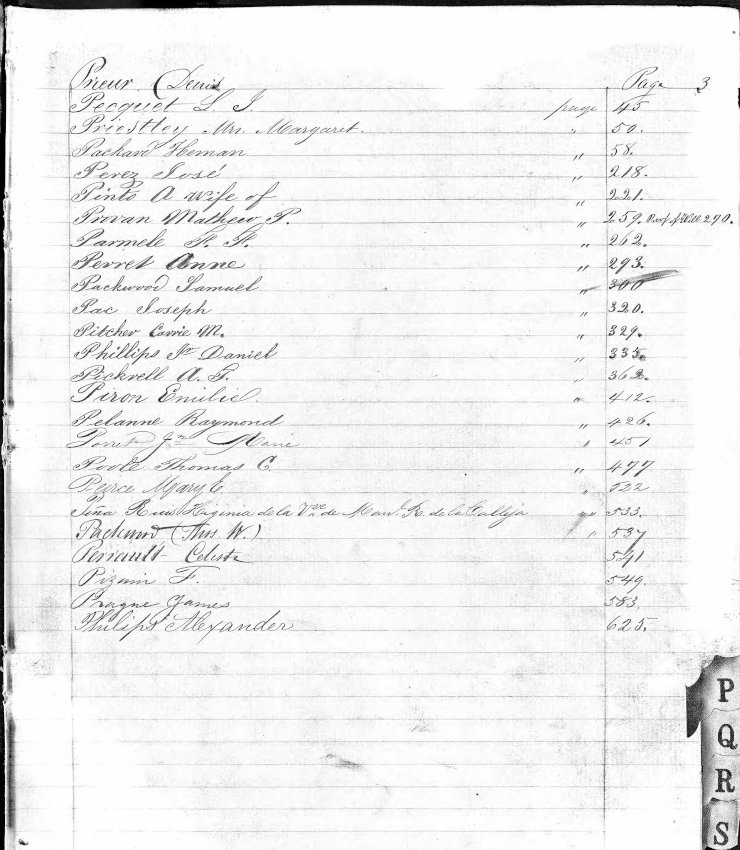 Prieur (Denis Page 3
Pecquet L J. page 45
Priestley Mrs. Margaret. " 50.
Packard Heman " 58.
Perez José " 218.
Pinto A wife of " 221.
Provan Mathew P. " 259. Proof of Will 270.
Parmele " 262.
Perret Anne " 293.
Packwood Samuel " 300
Pac Joseph " 320.
Pitcher Carrie M. " 329.
Phillips Jr Daniel " 335.
Pickrell A. " 362.
Piron Emilie " 412.
Pelanne Raymond " 426.
Jn " 451
Poole Thomas C. " 477
Peirce Mary E. " 522
Piña Higinia de la Vve de Man. R. de la Calleja " 533.
Packard (Ths W.) " 537
Perriault Celeste 541
F. 549.
Prague James 583.
Philips Alexander 625.
P
Q
R
S